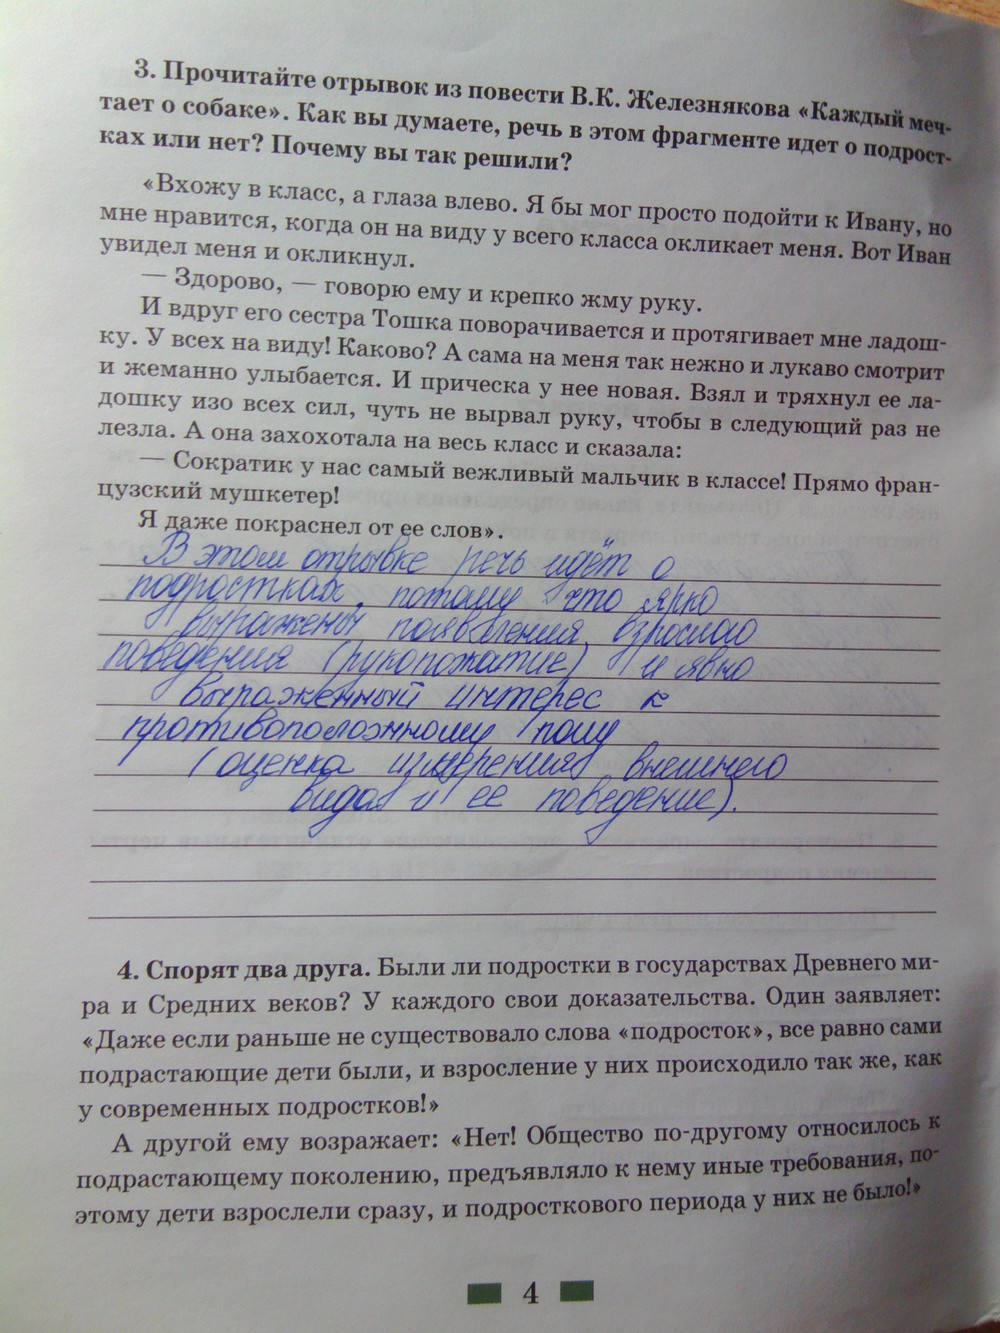 3. Прочитайте отрывок из повести В.К. Железнякова «Каждый меч-
тает о собаке». Как вы думаете, речь в этом фрагменте идет о подрост-
ках или нет? Почему вы так решили?
«Вхожу в класс, а глаза влево. Я бы мог просто подойти к Ивану, но
мне нравится, когда он на виду у всего класса окликает меня. Вот Иван
увидел меня и окликнул.
— Здорово, — говорю ему и крепко жму руку.
И вдруг его сестра Тошка поворачивается и протягивает мне ладош-
ку. У всех на виду! Каково? А сама на меня так нежно и лукаво смотрит
и жеманно улыбается. И прическа у нее новая. Взял и тряхнул ее ла-
дошку изо всех сил, чуть не вырвал руку, чтобы в следующий раз не
лезла. А она захохотала на весь класс и сказала:
— Сократик у нас самый вежливый мальчик в классе! Прямо фран-
цузский мушкетер!
Я даже покраснел от ее слов».
В этом отрывке речь идёт о
подростках, потому что ярко
выражены появления взрослого
поведения (рукопожатие) и явно
выраженный интерес к
противоположному полу
(оценка измерения внешнего
вида и ее поведение).
4. Спорят два друга. Были ли подростки в государствах Древнего ми-
ра и Средних веков? У каждого свои доказательства. Один заявляет:
«Даже если раньше не существовало слова «подросток», все равно сами
подрастающие дети были, и взросление у них происходило так же, как
у современных подростков!»
А другой ему возражает: «Нет! Общество по-другому относилось к
подрастающему поколению, предъявляло к нему иные требования, по-
этому дети взрослели сразу, и подросткового периода у них не было!»
4